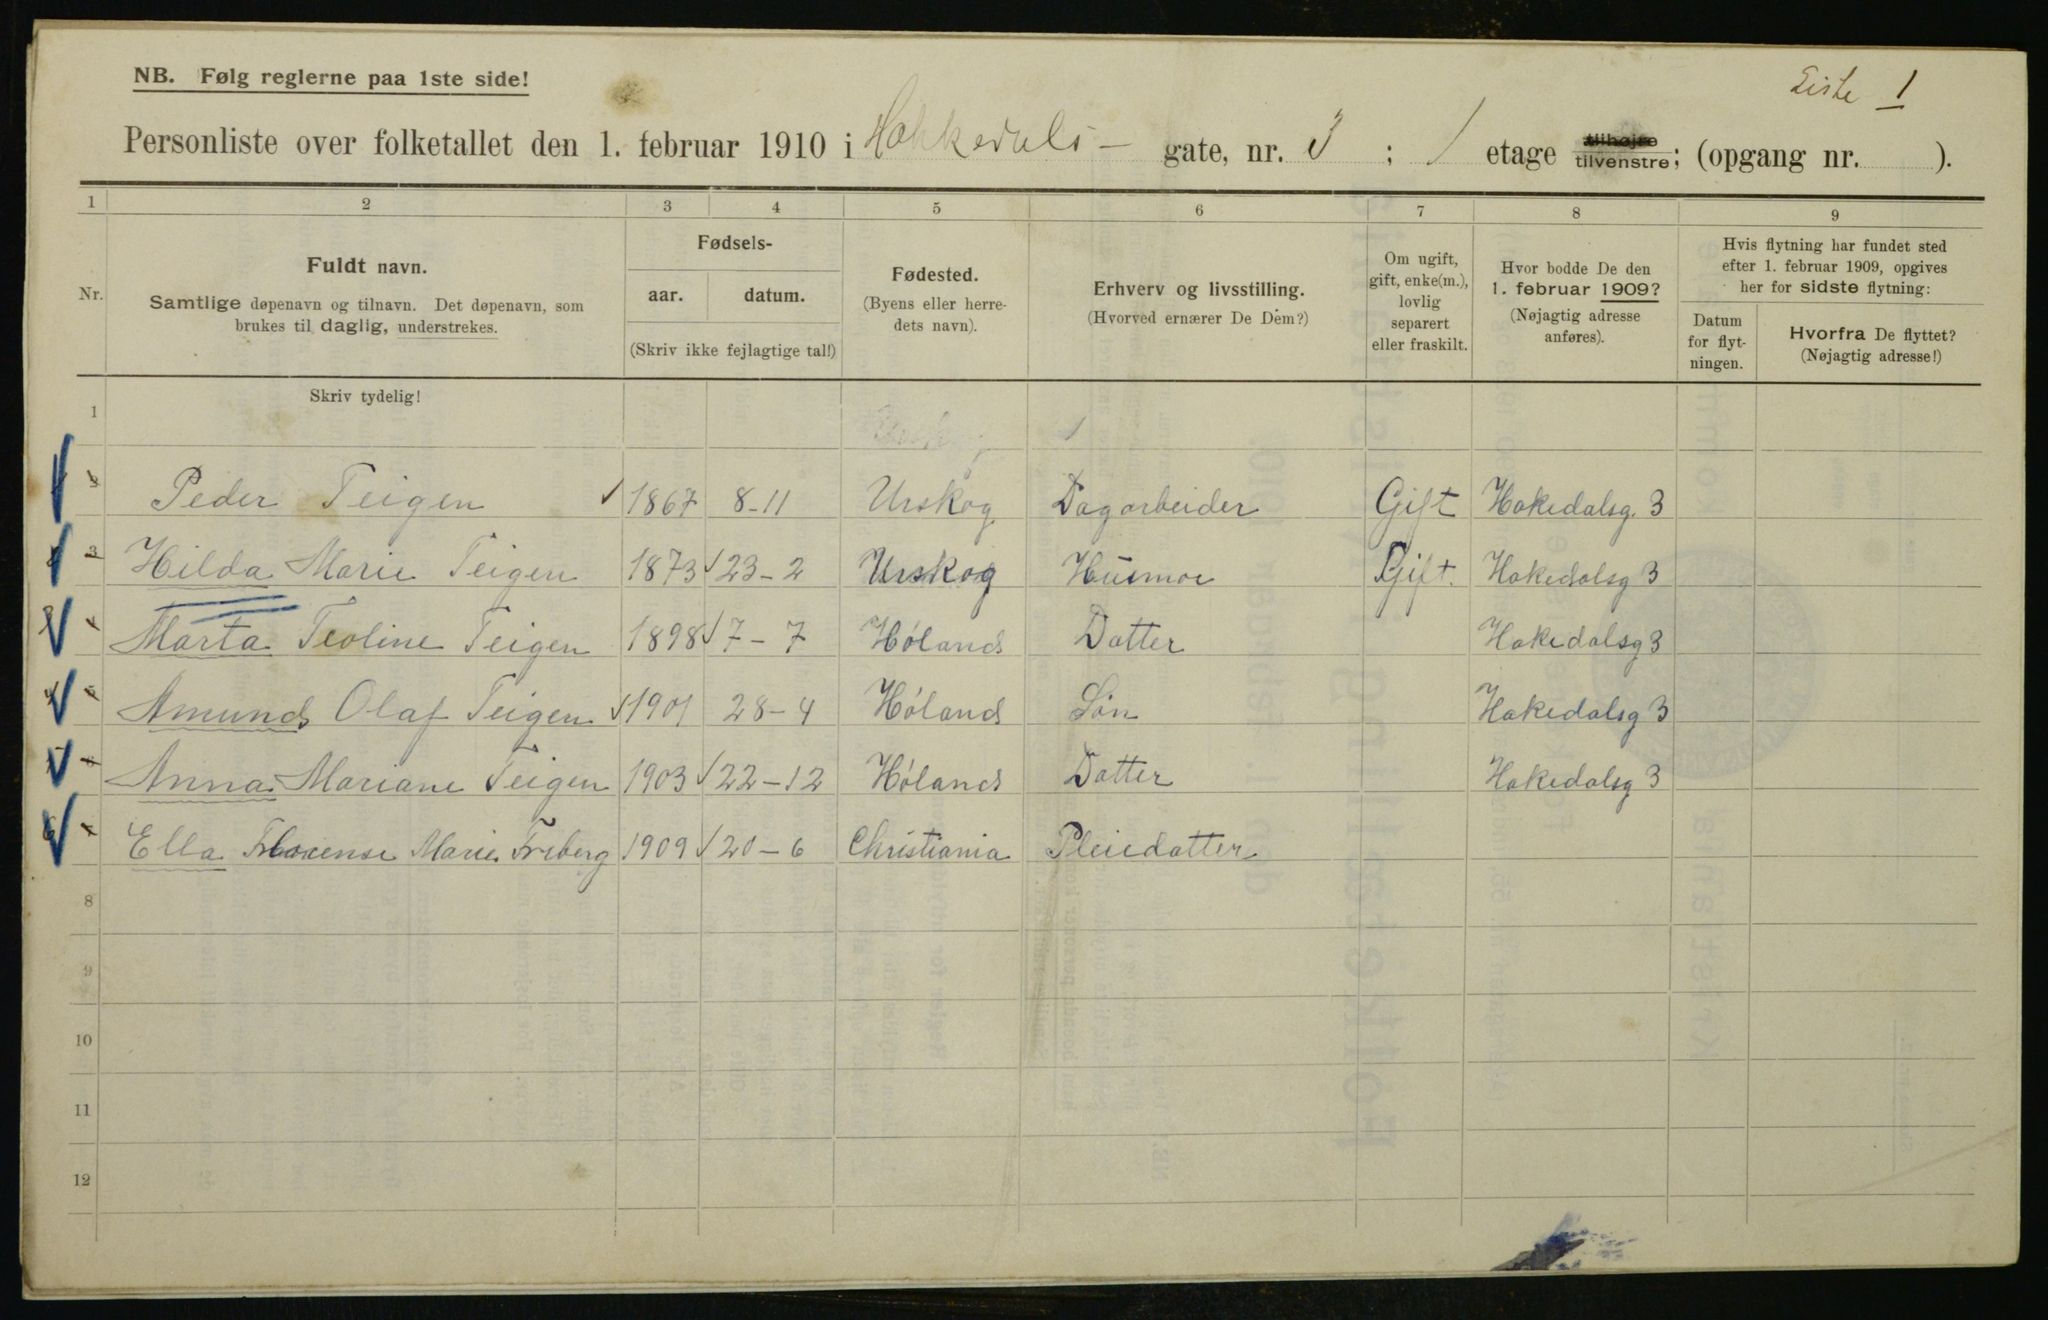 NB. Følg reglerne paa 1ste side!
Liste 1
Personliste over folketallet den 1. februar 1910 i Hakkedals- gate, nr. 3 ; 1 etage tilhøjre tilvenstre; (opgang nr. ).
1 2 3 4 5 6 7 8 9
Nr.
Fuldt navn.
Samtlige døpenavn og tilnavn. Det døpenavn, som
brukes til daglig, understrekes.
Fødsels-
aar. datum.
(Skriv ikke fejlagtige tal!)
Fødested.
(Byens eller herre-
dets navn).
Erhverv og livsstilling.
(Hvorved ernærer De Dem?)
Om ugift,
gift, enke(m.),
lovlig
separert
eller fraskilt.
Hvor bodde De den
1. februar 1909?
(Nøjagtig adresse
anføres).
Hvis flytning har fundet sted
efter 1. februar 1909, opgives
her for sidste flytning:
Datum
for flyt-
ningen.
Hvorfra De flyttet?
(Nøjagtig adresse!)
Skriv tydelig!
1
Peder Teigen 1867 8-11 Urskog Dagarbeider Gift Hakedalsg. 3
3 Hilda Marie Teigen 1873 23-2 Urskog Husmor Gift. Hakedalsg 3
Marta Teoline Teigen 1898 7-7 Høland Datter Hakedalsg 3
Amund Olaf Teigen 1901 28-4 Høland Søn Hakedalsg 3
Anna Mariane Teigen 1903 22-12 Høland Datter Hakedalsg 3
Ella Marie Friberg 1909 20-6 Christiania Pleiedatter
8
9
10
11
12